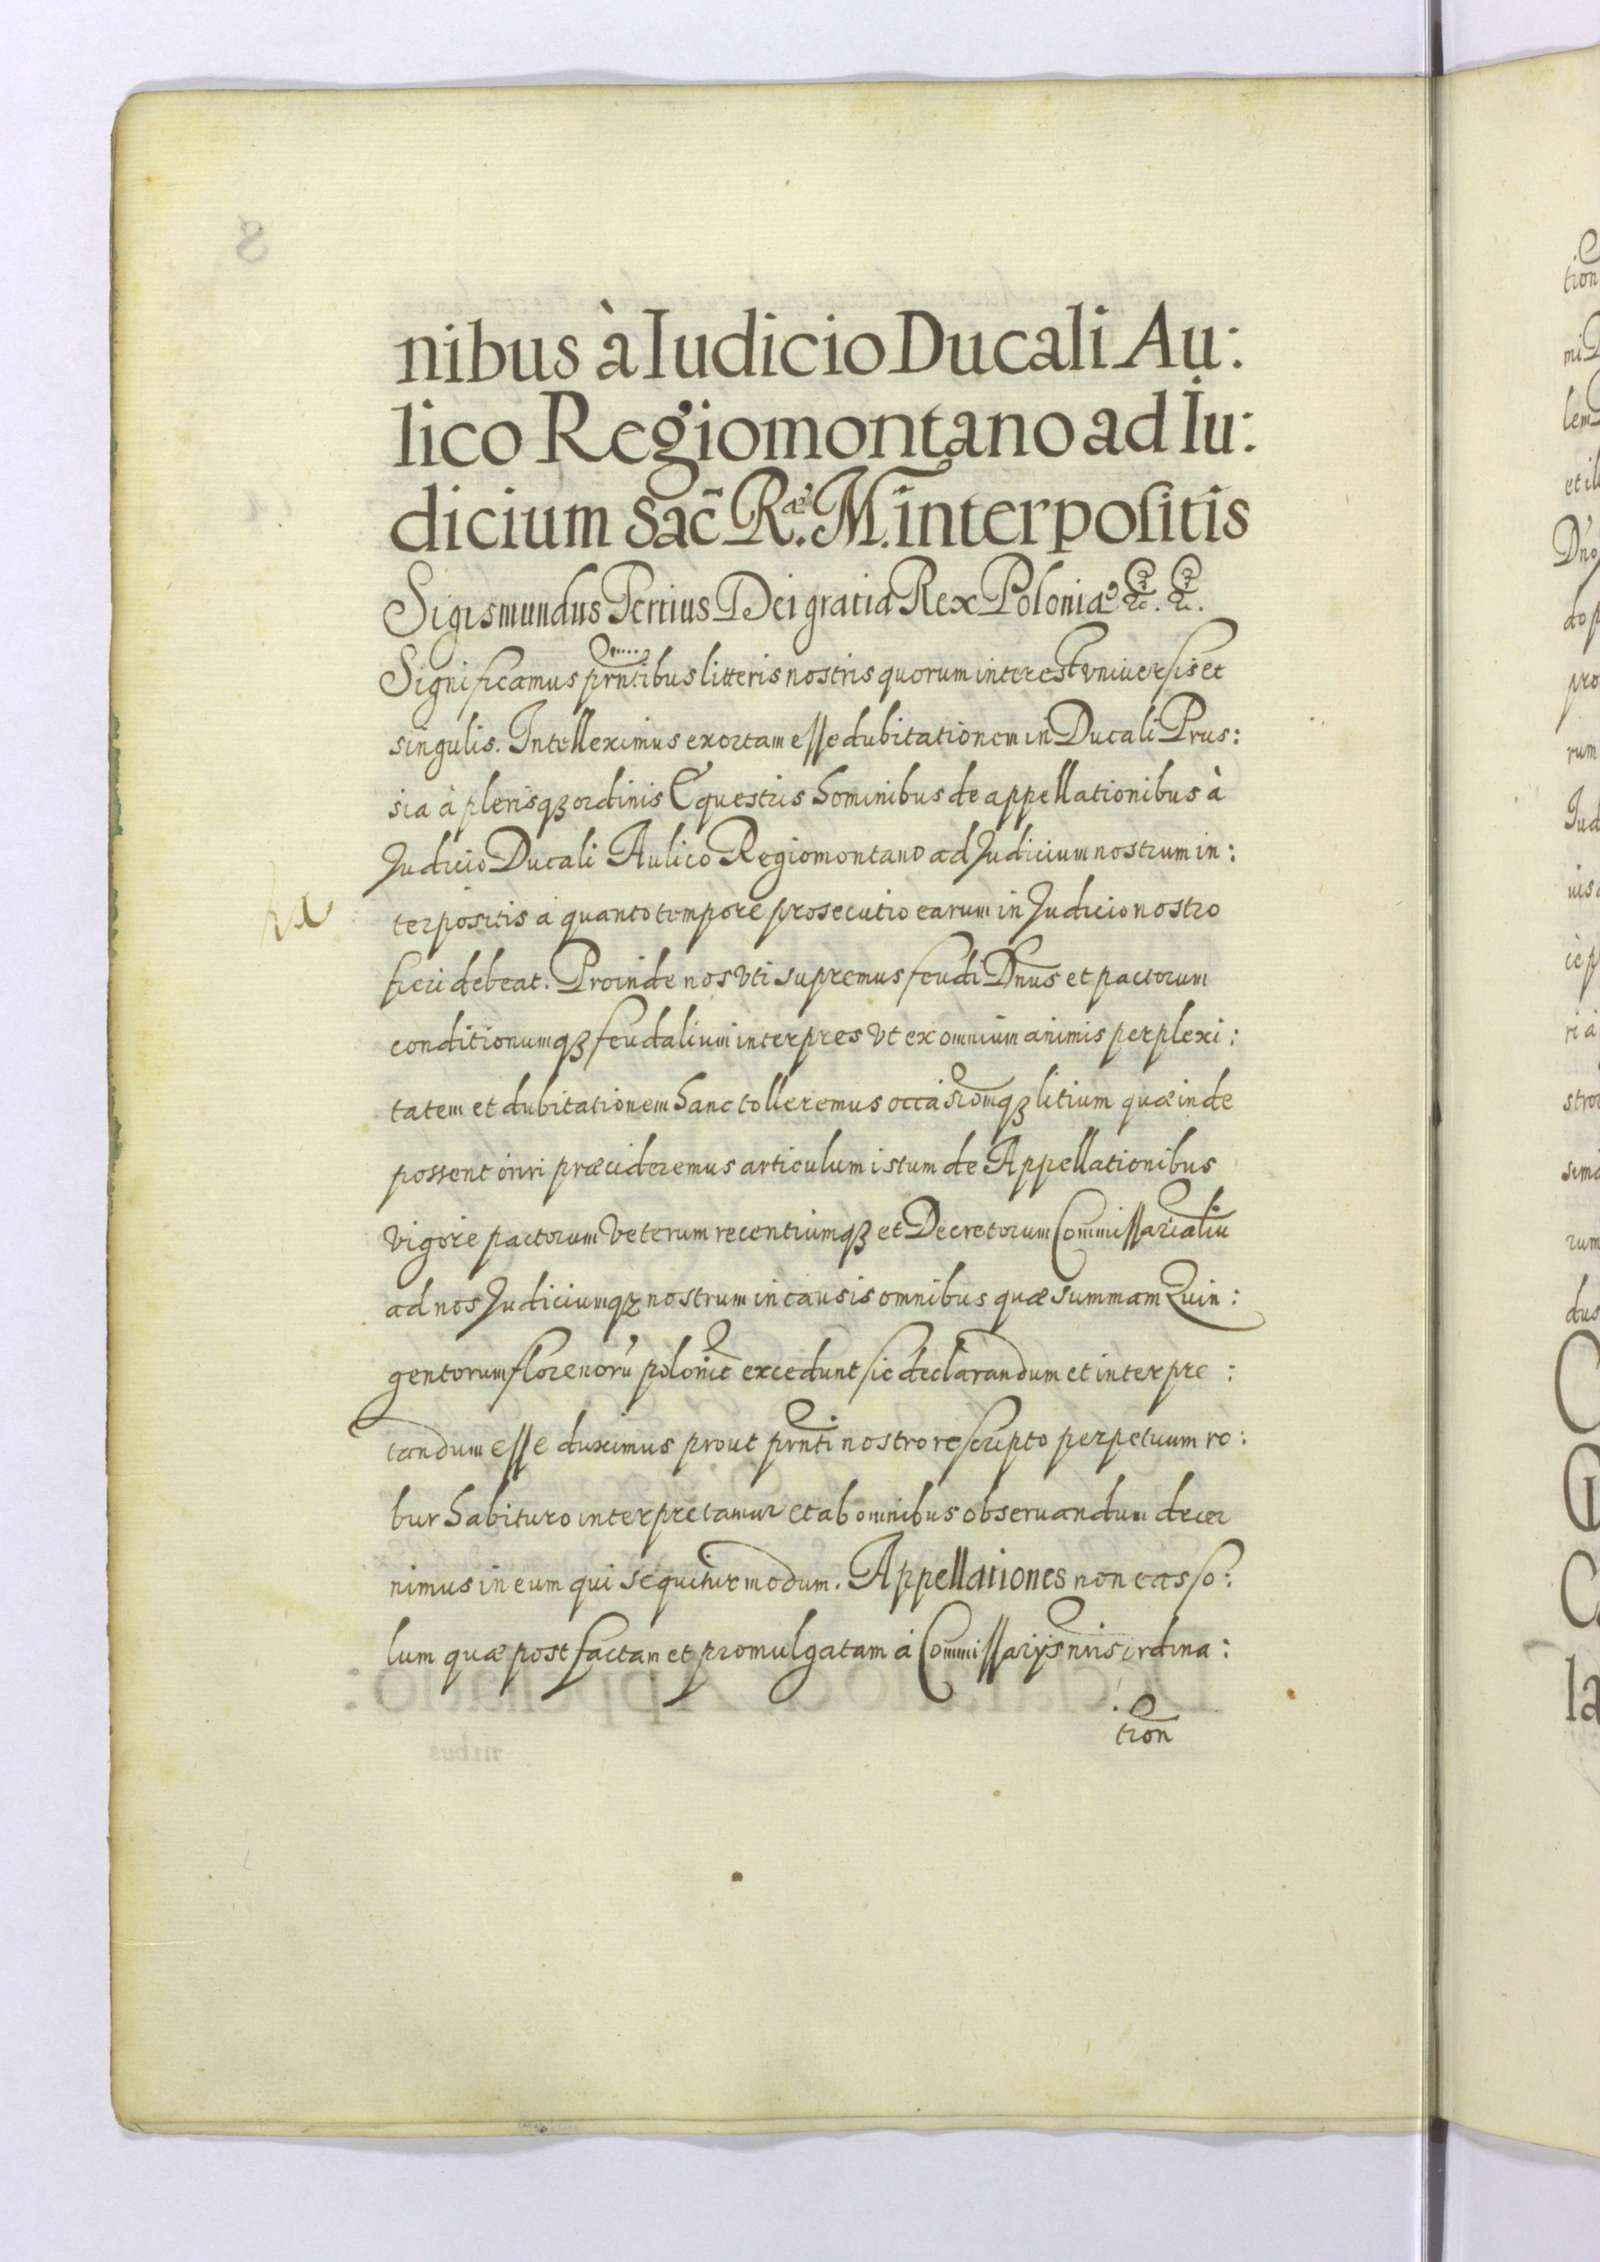 nibus à Iudicio Ducali Au:
lico Regiomontano ad Iu:
dicium Sac̃ R.æ M. interpositis
Sigismundus Tertius Dei gratia Rex Poloniæ &c. &c.
Significamus prntibus litteris nostris quorum interest vniversis et
singulis. Intelleximus exortam esse dubitationem in Ducali Prus:
sia à plerisqꝫ ordinis Equestris hominibus de appellationibus à
Judicio Ducali Aulico Regiomontano ad Judicium nostrum in:
terpositis a quanto tempore prosecutio earum in Judicio nostro
fieri debeat. Proinde nos vti supremus feudi Dnus et pactorum
conditionumqꝫ feudalium interpres vt ex omnium animis perplexi:
tatem et dubitationem hanc tolleremus occasionqꝫ litium quæ inde
possent oriri præcideremus articulum istum de Appellationibus
vigore pactorum veterum recentiumqꝫ et Decretorum Commissarialiu
ad nos Judiciumqꝫ nostrum in causis omnibus quæ summam Quin:
gentorum florenorũ polonic excedunt sic declarandum et interpre:
tandum esse duximus prout prnti nostro rescripto perpetuum ro:
bur habituro interpretamur et ab omnibus observandum decer
nimus in eum qui sequitur modum. Appellationes non eas so:
lum quæ post factam et promulgatam à Commissarijs nris ordina:
tion